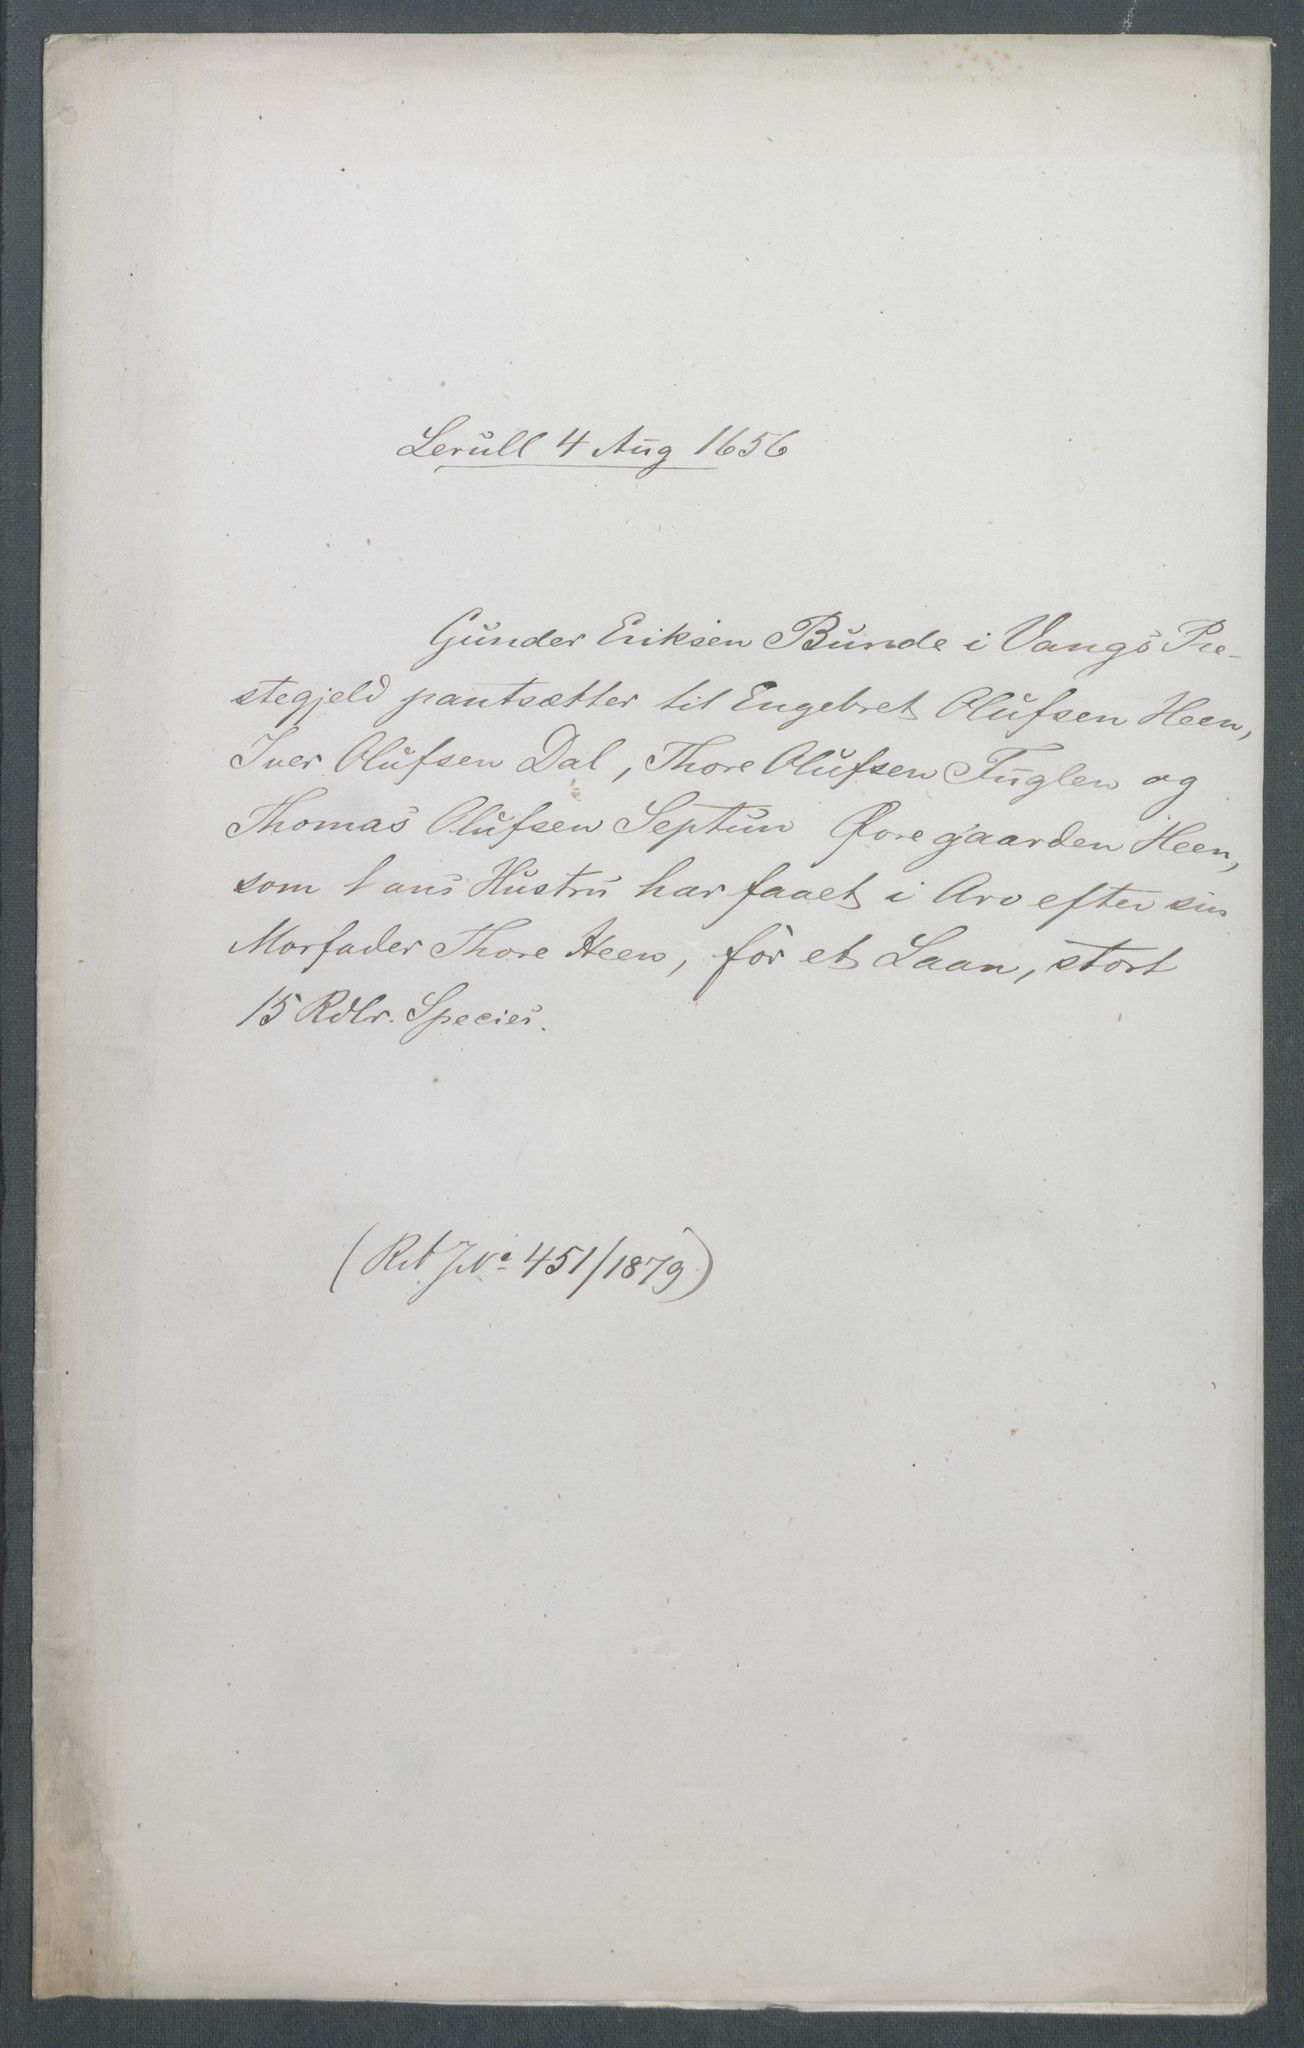 Lerull 4 Aug 1656
Gunder Eriksen Bunde i Vangs Pre-
stegjeld pantsætter til Engebret Olufsen Heen,
Iver Olufsen Dal, Thore Olufsen Fuglen og
Thomas Olufsen Septun Øvre gaarden Heen,
som hans Hustru har faaet i Arv efter sin
Morfader Thore Heen, for et Laan, stort
15 Rdlr. Species.
(RA J.No 451/1879)